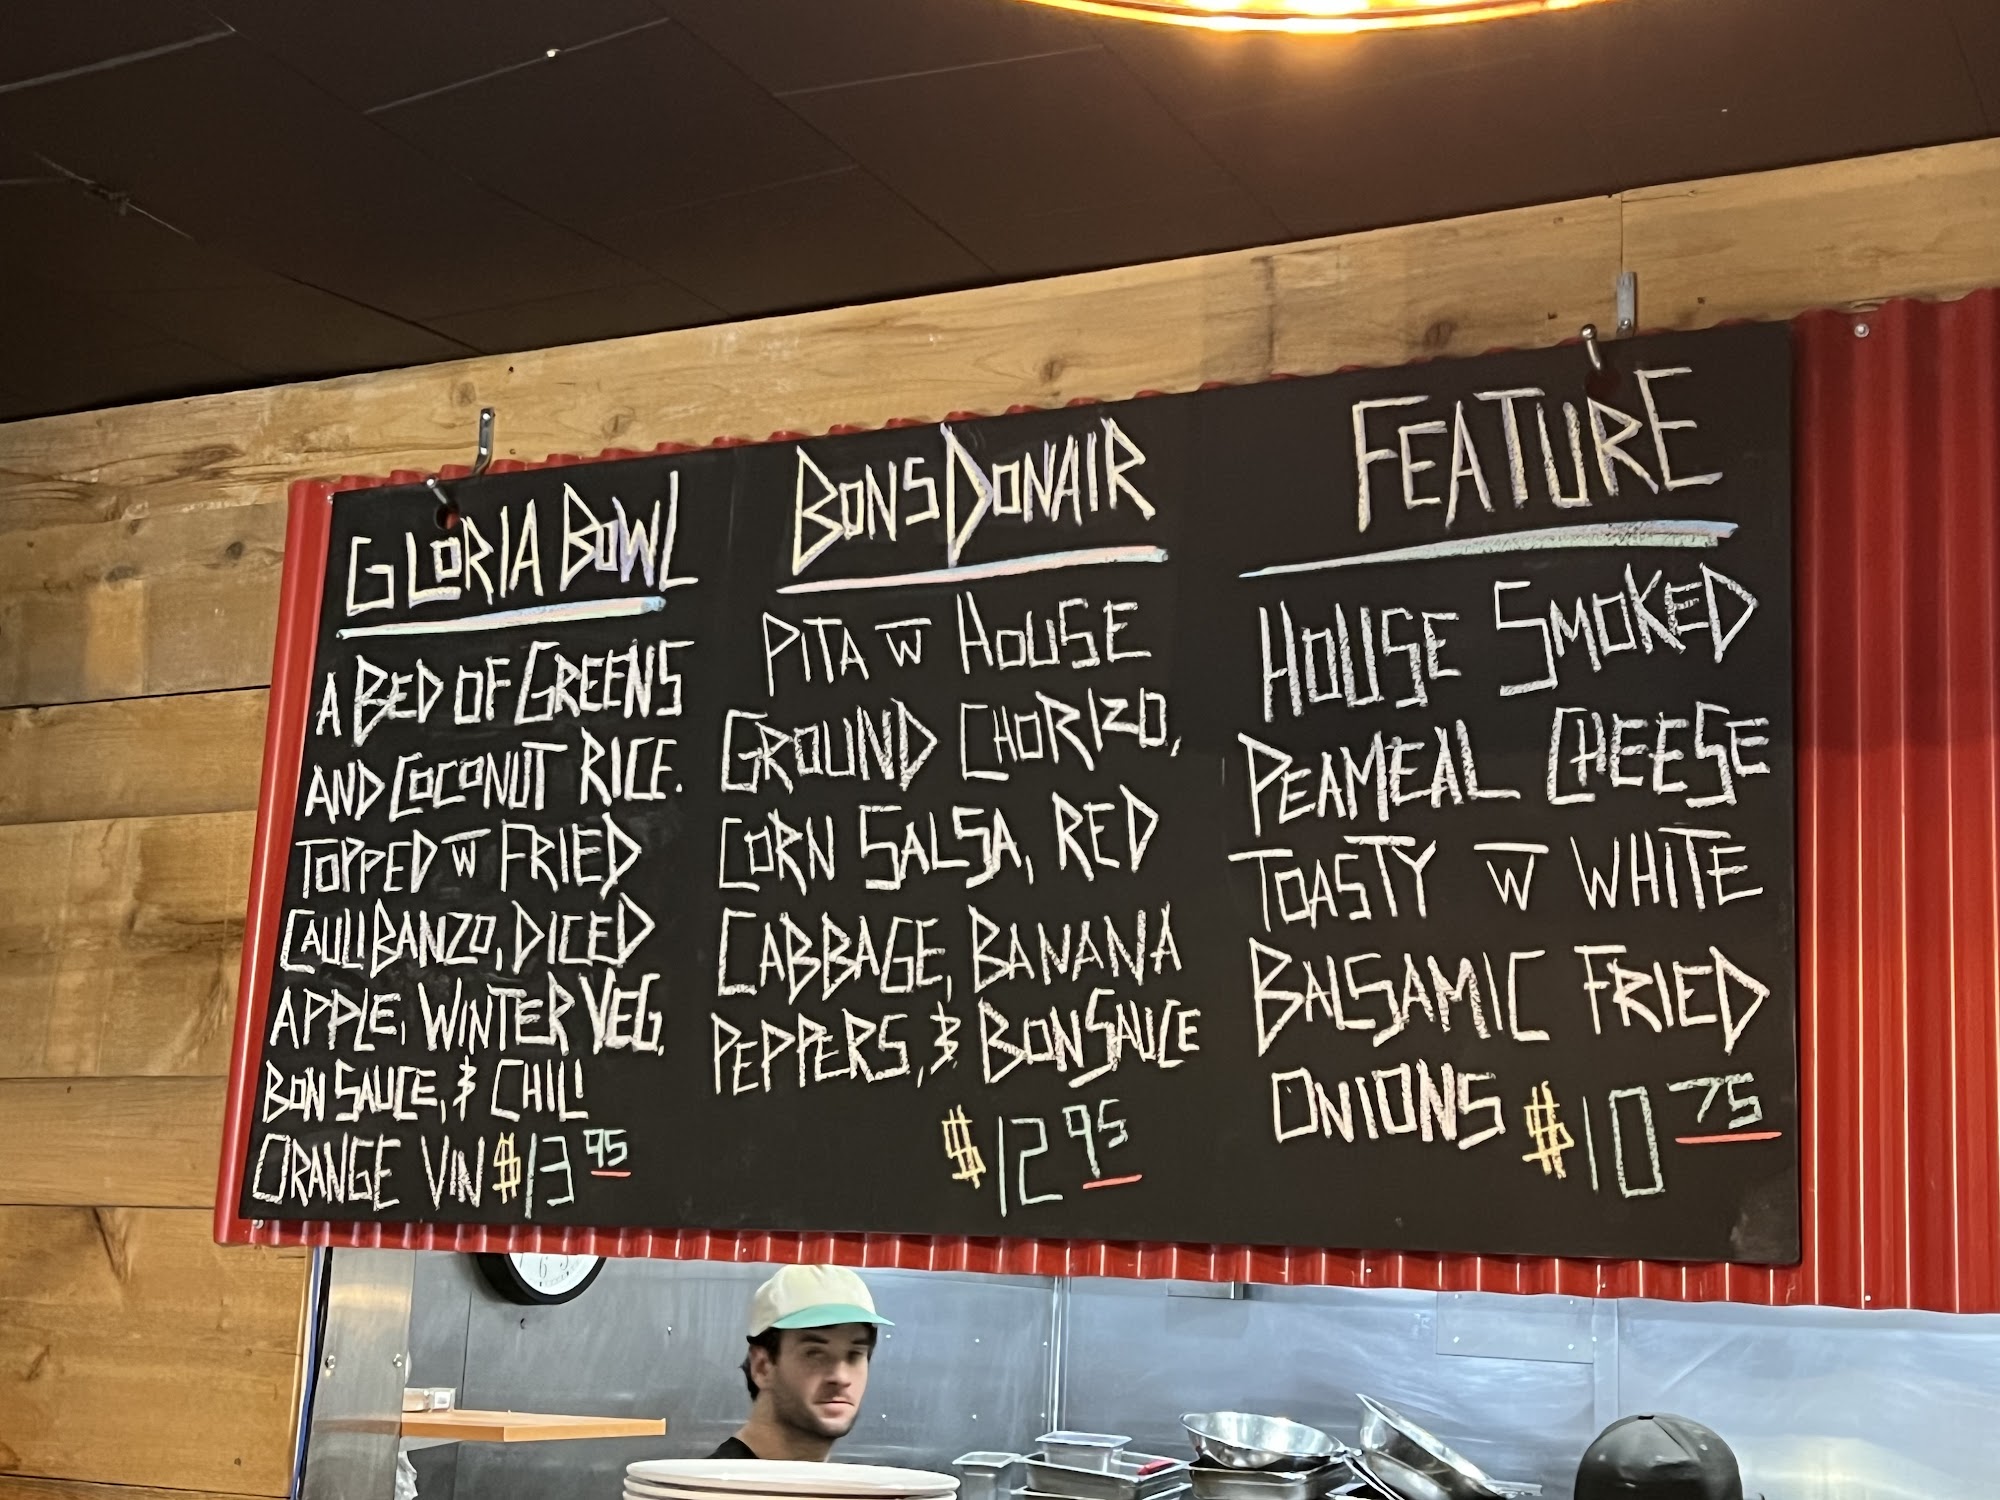 GLORIA BOWL
A BED OF GREENS
AND COCONUT RICE.
TOPPED W FRIED
CAULIBANZO, DICED
APPLE, WINTER VEG,
BON SAUCE, & CHILI
ORANGE VIN $13 95
BONS DONAIR
PITA W HOUSE
GROUND CHORIZO,
CORN SALSA, RED
CABBAGE, BANANA
PEPPERS, & BONSAUCE
$12 95
FEATURE
HOUSE SMOKED
PEAMEAL CHEESE
TOASTY W WHITE
BALSAMIC FRIED
ONIONS $10 75